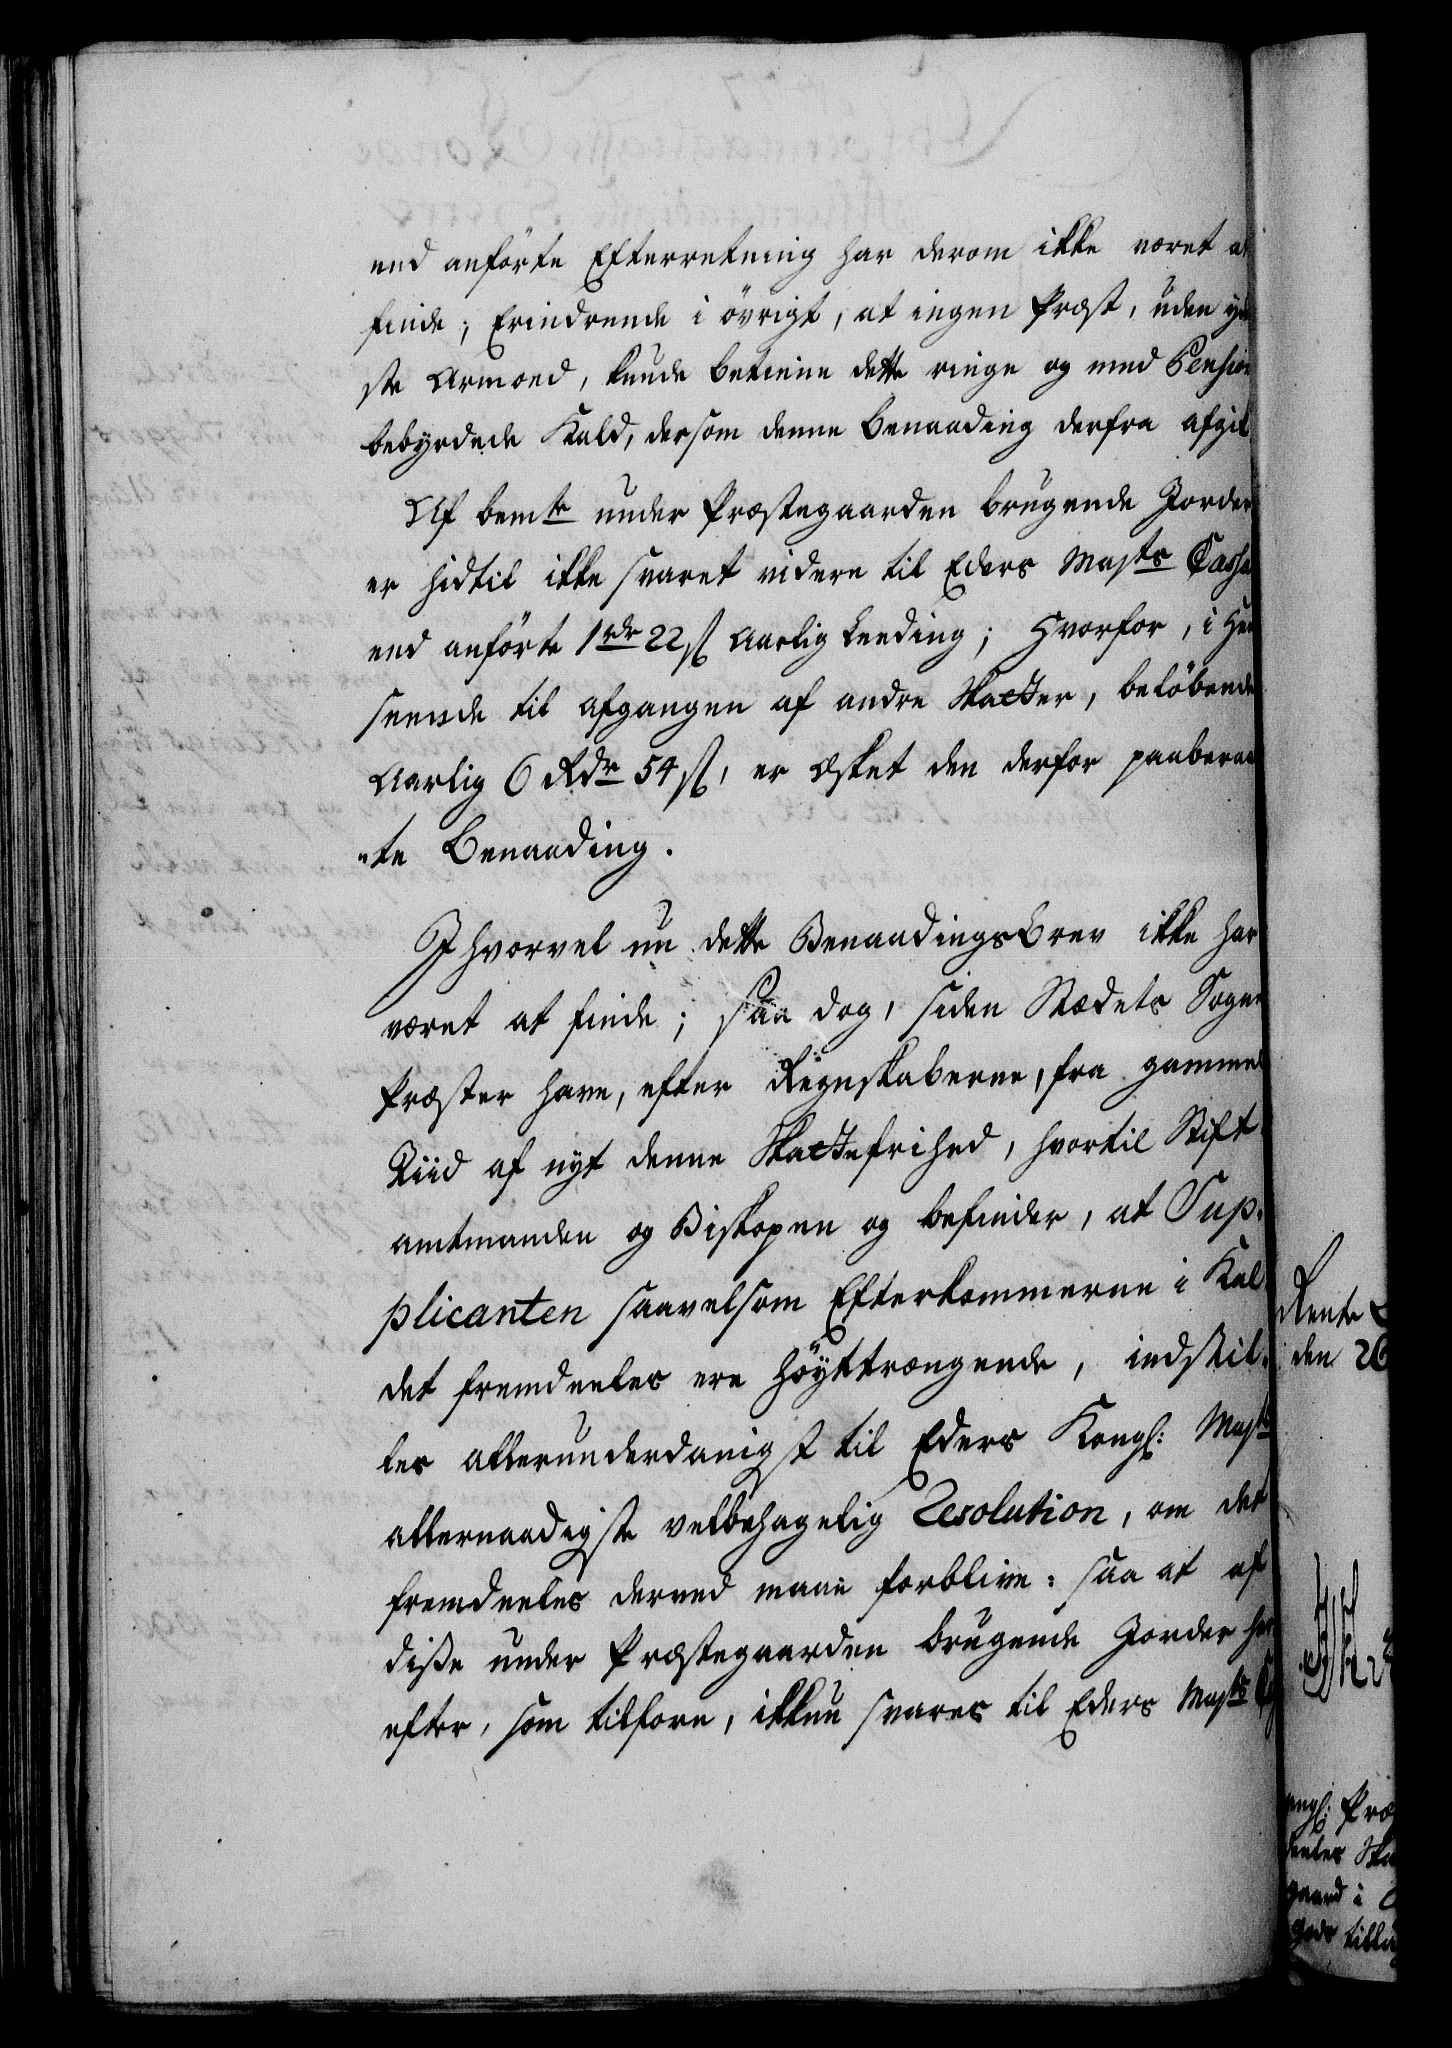 end anförte Efterretning har derom ikke været at
finde; Erindrende i övrigt, at ingen Præst, uden yder
ste Armoed, kunde betiene dette ringe og med Pension
bebyrdede Kald, dersom denne Benaading derfra afgik
Af bemte under Præstegaarden brugende Jorder
er hidtil ikke svaret videre til Eders Majts Cassa
end anförte 1 rdr 22 ß Aarlig Leeding; Hvorfor, i Hen
seende til afgangen af andre Skatter, belöbende
Aarlig 6 Rdr 54 ß, er æsket den derfor paaberaa
"te Benaading.
Ihvorvel nu dette Benaadingsbrev ikke har
været at finde; saa dog, siden Stædets Sogne
Præster have, efter Regnskaberne, fra gammel
Tiid af nyt denne Skattefrihed, hvortil Stift
amtmanden og Biskopen og befinder, at Sup-
plicanten saavelsom Efterkommerne i Kal
det fremdeeles ere höyttrængende, indstil-
les allerunderdanigst til Eders Kongl: Majts
allernaadigste velbehagelig Resolution, om det
fremdeeles derved maae forblive: saa at af
disse under Præstegaarden brugende Jorder her
efter, som tilforn, ikkun svares til Eders Majts
Rente
den 26
Kongl: Præ
gaard i